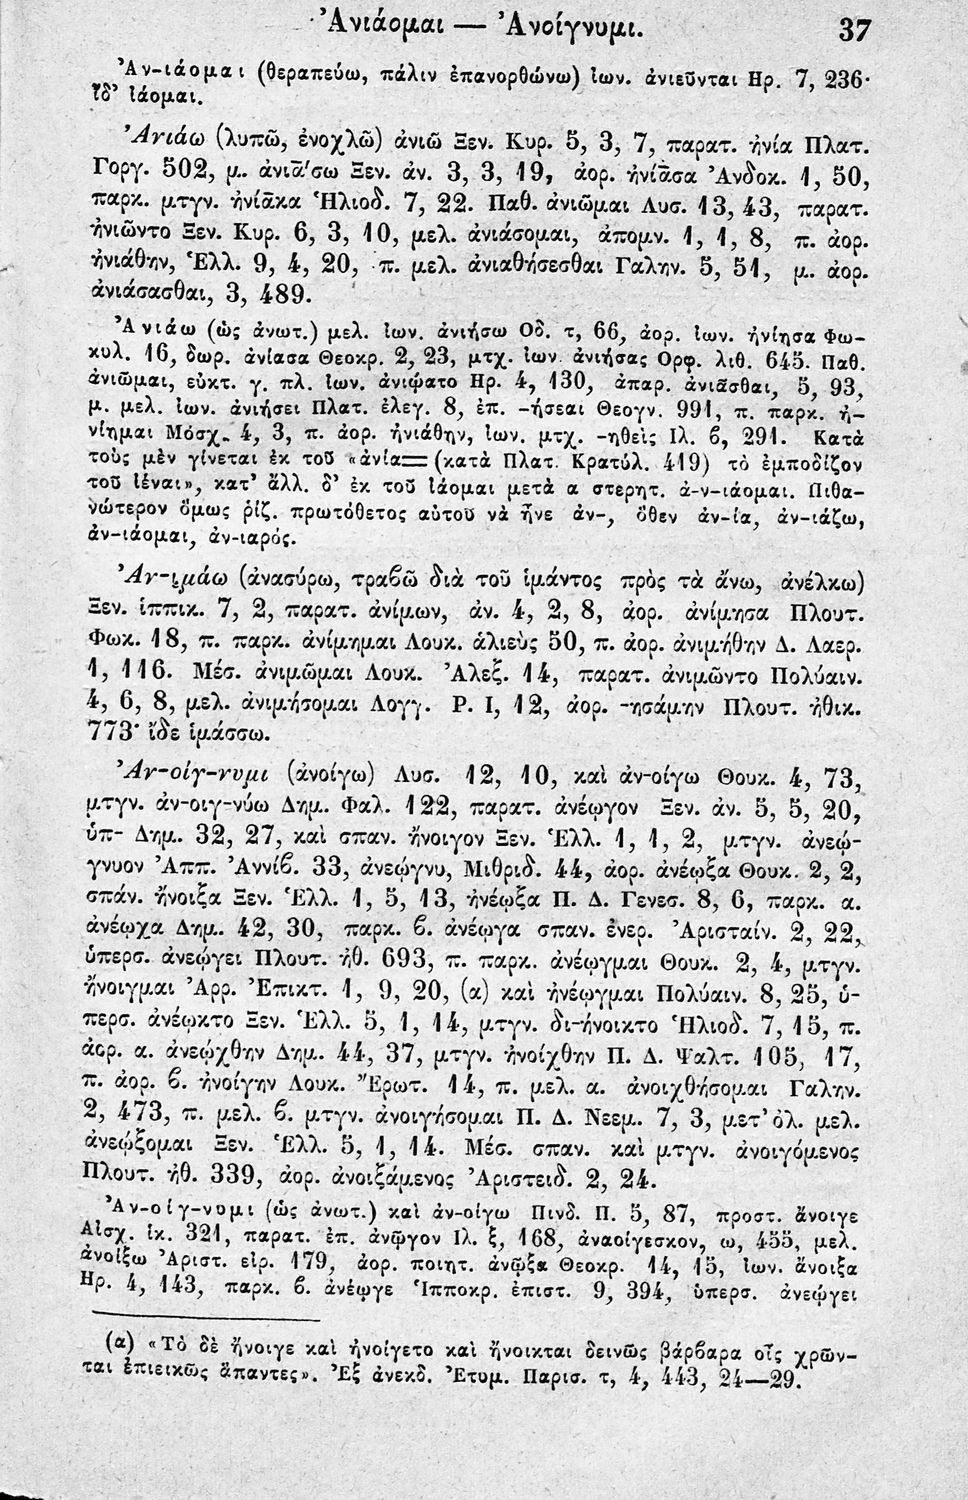 Ἀνιάομαι — Ἀνοίγνυμι. 37
Ἀν-ιάομαι (θεραπεύω, πάλιν ἐπανορθώνω) ἰων. ἀνιεῦνται Ηρ. 7, 236·
ἴδ' ἰάομαι.
Ἀνιάω (λυπῶ, ἐνοχλῶ) ἀνιῶ Ξεν. Κυρ. 5, 3, 7, παρατ. ἠνία Πλατ.
Γοργ. 502, μ. ἀνιᾱ́σω Ξεν. ἀν. 3, 3, 19, ἀορ. ἠνίᾱσα Ἀνδοκ. 1, 50,
παρκ. μτγν. ἠνίᾱκα Ἡλιοδ. 7, 22. Παθ. ἀνιῶμαι Λυσ. 13, 43, παρατ.
ἠνιῶντο Ξεν. Κυρ. 6, 3, 10, μελ. ἀνιάσομαι, ἀπομν. 1, 1, 8, π. ἀορ.
ἠνιάθην, Ἑλλ. 9, 4, 20, π. μελ. ἀνιαθήσεσθαι Γαλην. 5, 51, μ. ἀορ.
ἀνιάσασθαι, 3, 489.
Ἀνιάω (ὡς ἀνωτ.) μελ. ἰων. ἀνιήσω Οδ. τ, 66, ἀορ. ἰων. ἠνίησα Φω-
κυλ. 16, δωρ. ἀνίασα Θεοκρ. 2, 23, μτχ. ἰων. ἀνιήσας Ορφ. λιθ. 645. Παθ.
ἀνιῶμαι, εὐκτ. γ. πλ. ἰων. ἀνιῴατο Ηρ. 4, 130, ἀπαρ. ἀνιᾶσθαι, 5, 93,
μ. μελ. ἰων. ἀνιήσει Πλατ. ἐλεγ. 8, ἐπ. -ήσεαι Θεογν. 991, π. παρκ. ἠ-
νίημαι Μόσχ. 4, 3, π. ἀορ. ἠνιάθην, ἰων. μτχ. -ηθεὶς Ιλ. β, 291. Κατὰ
τοὺς μὲν γίνεται ἐκ τοῦ «ἀνία=(κατὰ Πλατ. Κρατύλ. 419) τὸ ἐμποδίζον
τοῦ ἰέναι», κατ' ἄλλ. δ' ἐκ τοῦ ἰάομαι μετὰ α στερητ. ἀ-ν-ιάομαι. Πιθα-
νώτερον ὅμως ῥίζ. πρωτόθετος αὐτοῦ νὰ ἦνε ἀν-, ὅθεν ἀν-ία, ἀν-ιάζω,
ἀν-ιάομαι, ἀν-ιαρός.
Ἀν-ιμάω (ἀνασύρω, τραβῶ διὰ τοῦ ἱμάντος πρὸς τὰ ἄνω, ἀνέλκω)
Ξεν. ἱππικ. 7, 2, παρατ. ἀνίμων, ἀν. 4, 2, 8, ἀορ. ἀνίμησα Πλουτ.
Φωκ. 18, π. παρκ. ἀνίμημαι Λουκ. ἁλιεὺς 50, π. ἀορ. ἀνιμήθην Δ. Λαερ.
1, 116. Μέσ. ἀνιμῶμαι Λουκ. Ἀλεξ. 14, παρατ. ἀνιμῶντο Πολύαιν.
4, 6, 8, μελ. ἀνιμήσομαι Λογγ. P. I, 12, ἀορ. -ησάμην Πλουτ. ἠθικ.
773· ἴδε ἱμάσσω.
Ἀν-οίγ-νυμι (ἀνοίγω) Λυσ. 12, 10, καὶ ἀν-οίγω Θουκ. 4, 73,
μτγν. ἀν-οιγ-νύω Δημ. Φαλ. 122, παρατ. ἀνέῳγον Ξεν. ἀν. 5, 5, 20,
ὑπ- Δημ. 32, 27, καὶ σπαν. ἤνοιγον Ξεν. Ἑλλ. 1, 1, 2, μτγν. ἀνεῴ-
γνυον Ἀππ. Ἀννίβ. 33, ἀνεῴγνυ, Μιθριδ. 44, ἀορ. ἀνέῳξα Θουκ. 2, 2,
σπάν. ἤνοιξα Ξεν. Ἑλλ. 1, 5, 13, ἠνέῳξα Π. Δ. Γενεσ. 8, 6, παρκ. α.
ἀνέῳχα Δημ. 42, 30, παρκ. β. ἀνέῳγα σπαν. ἐνερ. Ἀρισταίν. 2, 22,
ὑπερσ. ἀνεῴγει Πλουτ. ἠθ. 693, π. παρκ. ἀνέῳγμαι Θουκ. 2, 4, μτγν.
ἤνοιγμαι Ἀρρ. Ἐπικτ. 1, 9, 20, (α) καὶ ἠνέῳγμαι Πολύαιν. 8, 25, ὑ-
περσ. ἀνέῳκτο Ξεν. Ἑλλ. 5, 1, 14, μτγν. δι-ήνοικτο Ἡλιοδ. 7, 15, π.
ἀορ. α. ἀνεῴχθην Δημ. 44, 37, μτγν. ἠνοίχθην Π. Δ. Ψαλτ. 105, 17,
π. ἀορ. β. ἠνοίγην Λουκ. Ἔρωτ. 14, π. μελ. α. ἀνοιχθήσομαι Γαλην.
2, 473, π. μελ. β. μτγν. ἀνοιγήσομαι Π. Δ. Νεεμ. 7, 3, μετ' ὀλ. μελ.
ἀνεῴξομαι Ξεν. Ἑλλ. 5, 1, 14. Μέσ. σπαν. καὶ μτγν. ἀνοιγόμενος
Πλουτ. ἠθ. 339, ἀορ. ἀνοιξάμενος Ἀριστειδ. 2, 24.
Ἀν-οίγ-νυμι (ὡς ἀνωτ.) καὶ ἀν-οίγω Πινδ. Π. 5, 87, προστ. ἄνοιγε
Αἰσχ. ἱκ. 321, παρατ. ἐπ. ἀνῷγον Ιλ. ξ, 168, ἀναοίγεσκον, ω, 455, μελ.
ἀνοίξω Ἀριστ. εἰρ. 179, ἀορ. ποιητ. ἀνῷξα Θεοκρ. 14, 15, ἰων. ἄνοιξα
Ηρ. 4, 143, παρκ. β. ἀνέῳγε Ἱπποκρ. ἐπιστ. 9, 394, ὑπερσ. ἀνεῴγει
(α) «Τὸ δὲ ἤνοιγε καὶ ἠνοίγετο καὶ ἤνοικται δεινῶς βάρβαρα οἷς χρῶν-
ται ἐπιεικῶς ἅπαντες». Ἐξ ἀνεκδ. Ἐτυμ. Παρισ. τ, 4, 443, 24—29.